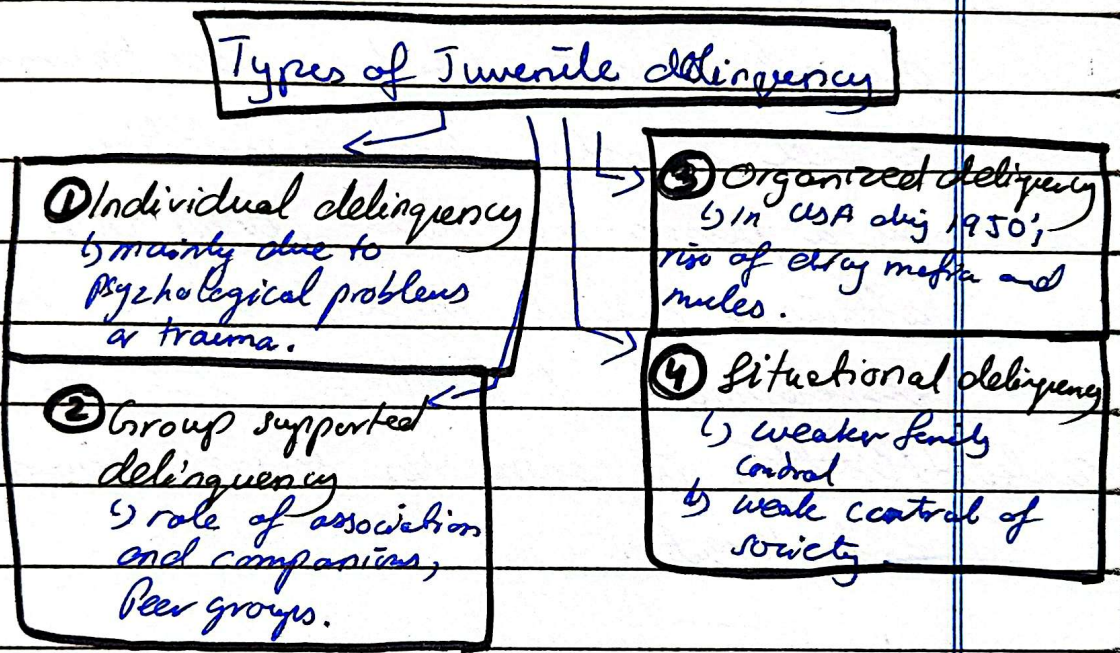 Types of Juvenile delinquency
① Individual delinquency
↳ mainly due to
psyzhological problems
or trauma.
② Group supported
delinquency
↳ role of association
and companions,
Peer groups.
③ Organized deliquency
↳ In USA 1950's
rise of drug mafia and
mules.
④ Situational delinquency
↳ weaker family
control
↳ weak control of
society